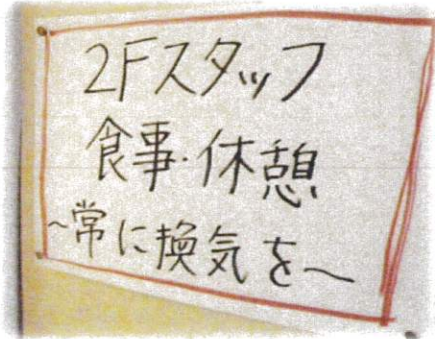 2Fスタッフ
食事・休憩
～常に換気を～